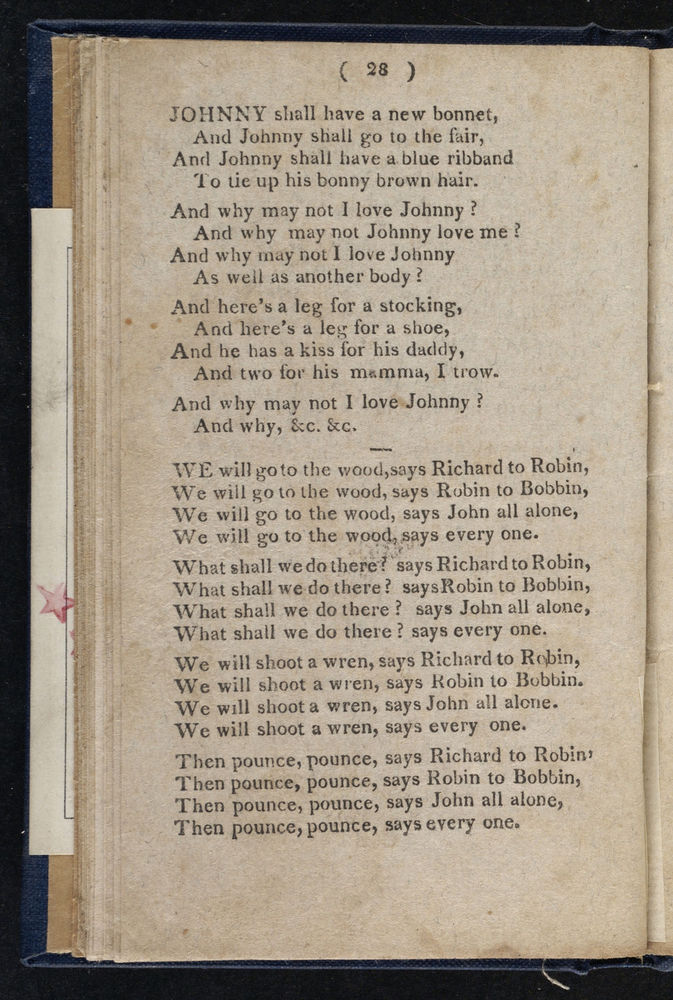 ( 28 )
JOHNNY shall have a new bonnet,
And Johnny shall go to the fair,
And Johnny shall have a blue ribband
To tie up his bonny brown hair.
And why may not I love Johnny ?
And why may not Johnny love me ?
And why may not I love Johnny
As well as another body ?
And here's a leg for a stocking,
And here's a leg for a shoe,
And he has a kiss for his daddy,
And two for his mamma, I trow.
And why may not I love Johnny ?
And why, &c. &c.
WE will go to the wood, says Richard to Robin,
We will go to the wood, says Robin to Bobbin,
We will go to the wood, says John all alone,
We will go to the wood, says every one.
What shall we do there ? says Richard to Robin,
What shall we do there ? says Robin to Bobbin,
What shall we do there ? says John all alone,
What shall we do there ? says every one.
We will shoot a wren, says Richard to Robin,
We will shoot a wren, says Robin to Bobbin.
We will shoot a wren, says John all alone.
We will shoot a wren, says every one.
Then pounce, pounce, says Richard to Robin,
Then pounce, pounce, says Robin to Bobbin,
Then pounce, pounce, says John all alone,
Then pounce, pounce, says every one.